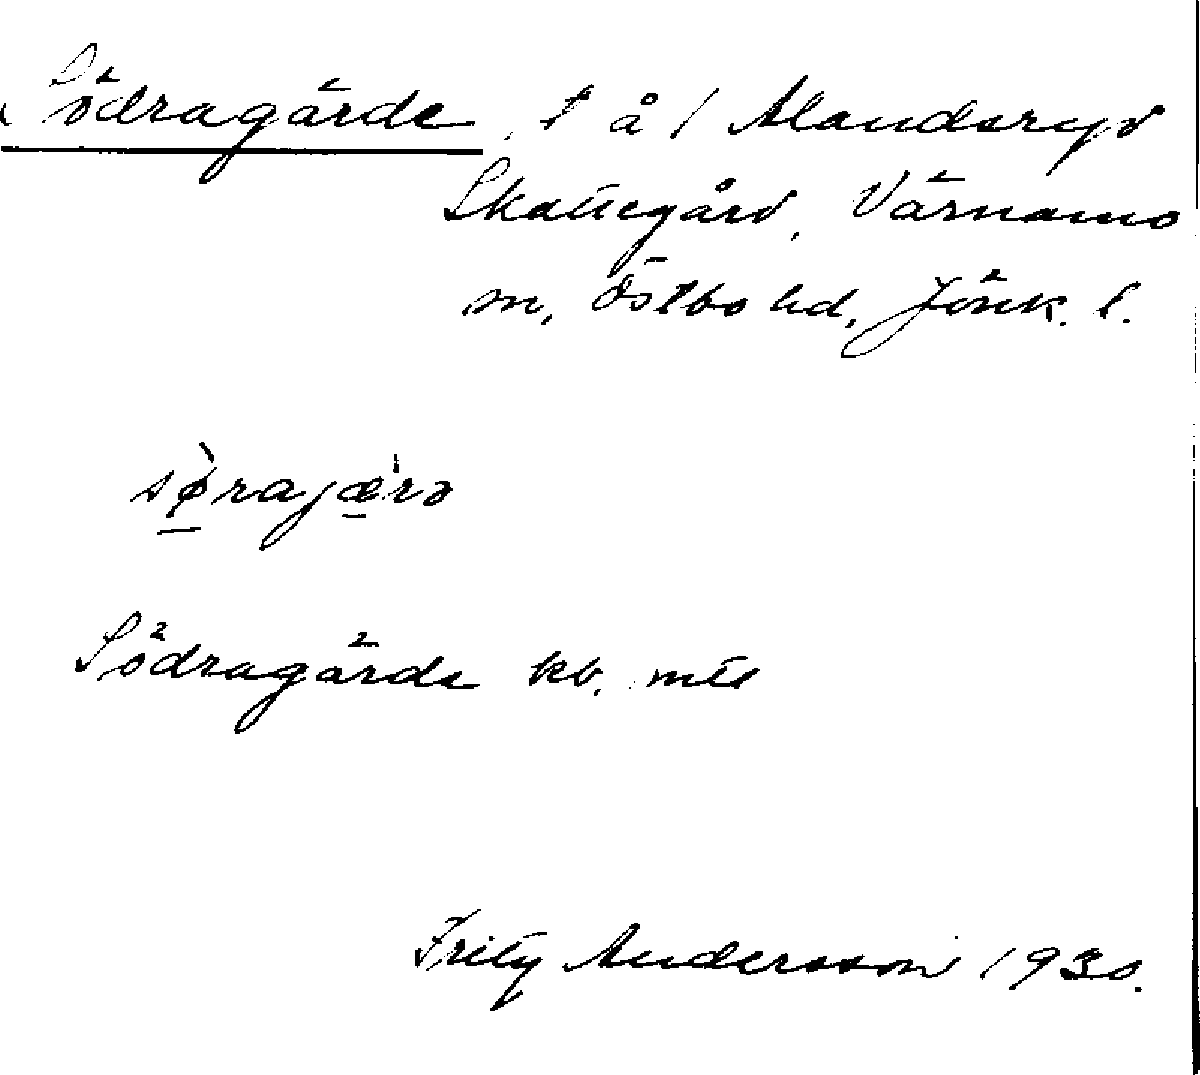 Södragärde, t å / Alandsryd
Skattegård, Värnamo
m, Östbo hd, Jönk. l.
sø̀rajæ̀rə
Södragärde kb. mtl
Fritz Andersson 1930.